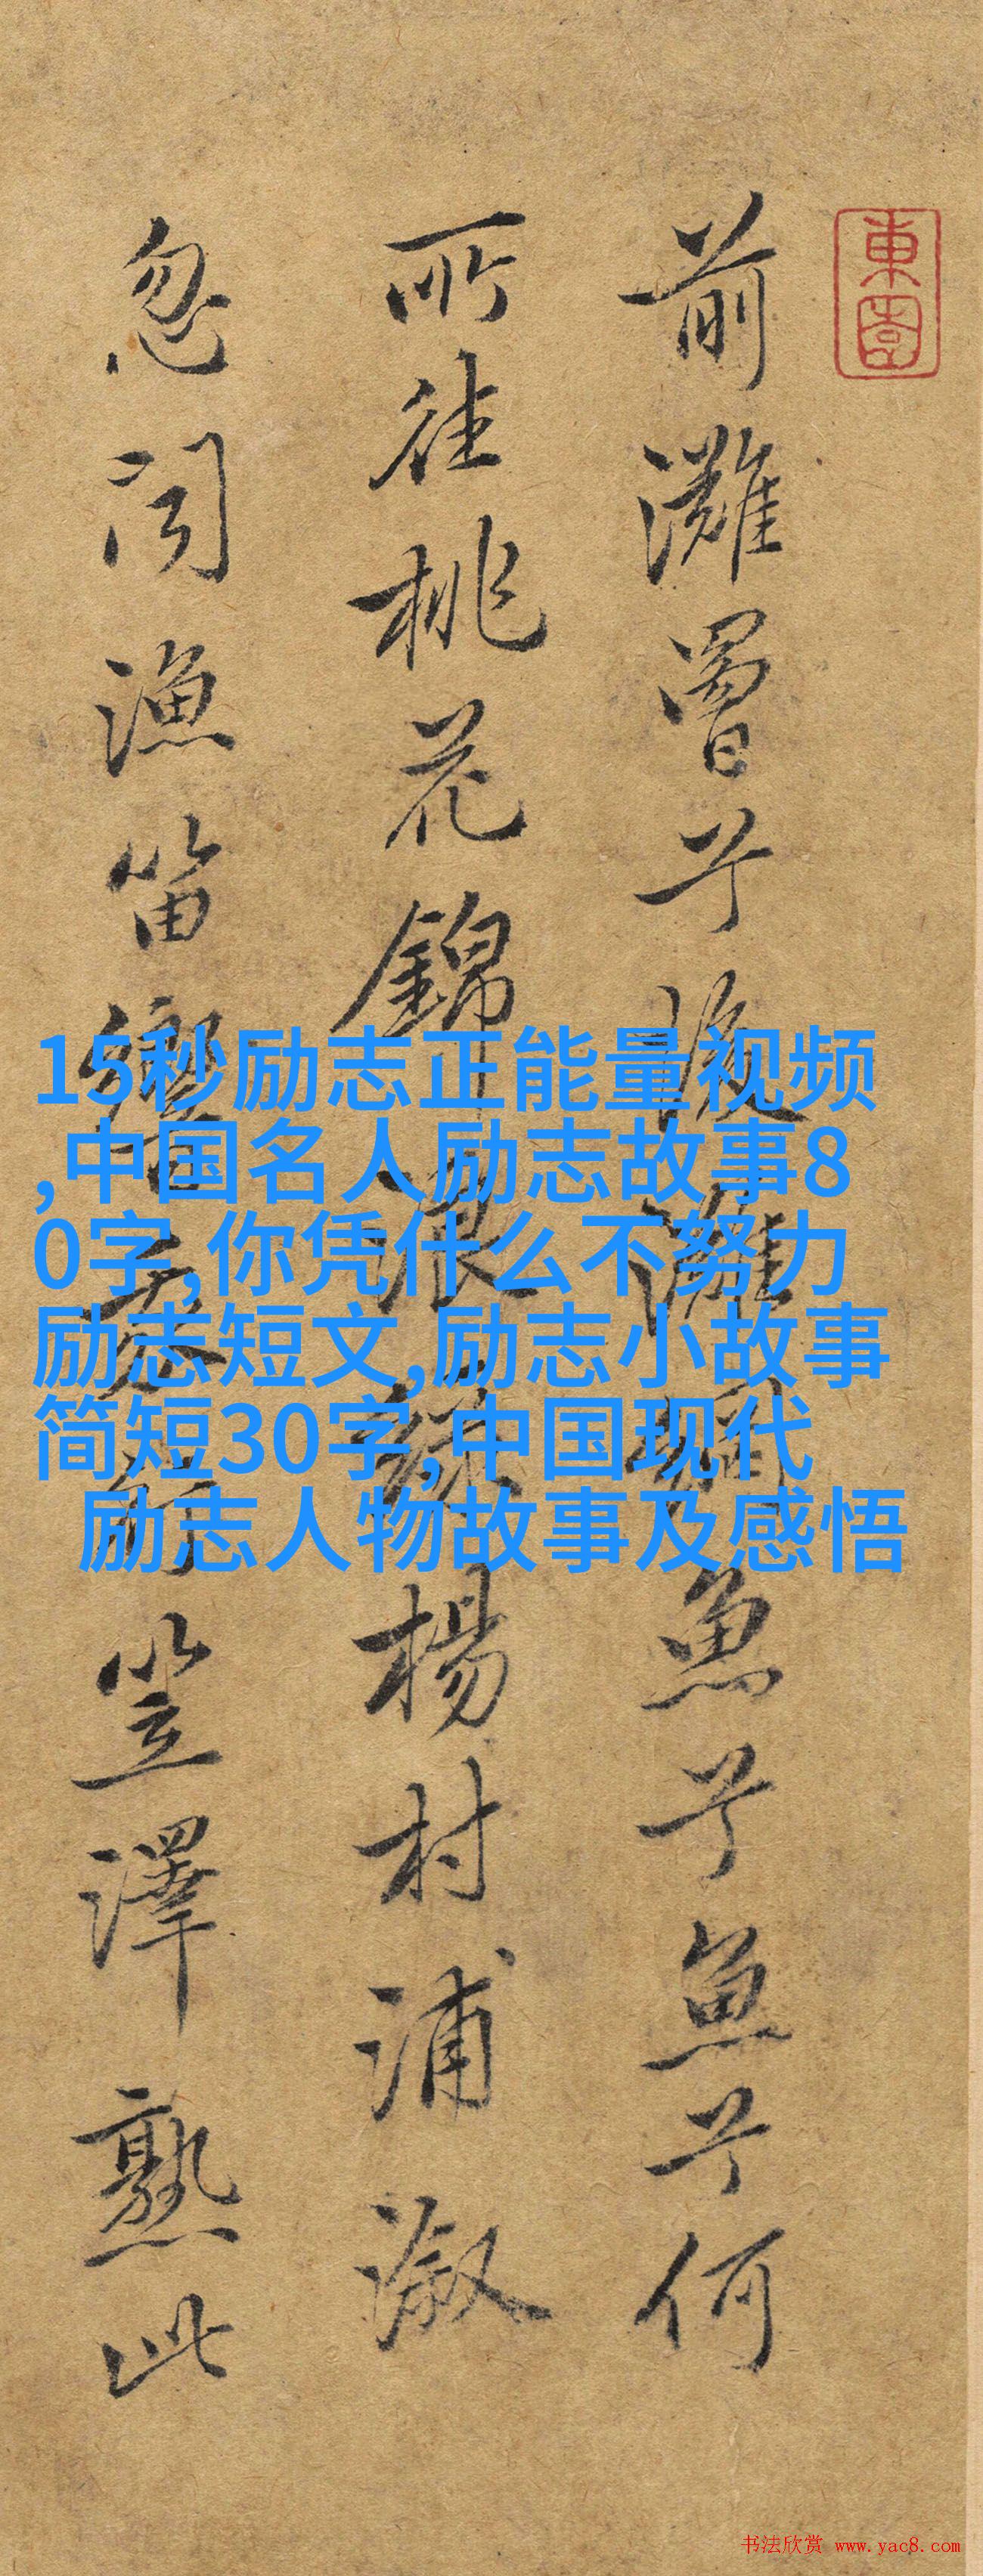 東園
前灘罾兮後灘網魚兮魚兮何
所往桃花錦浪綠楊村浦溆
忽聞漁笛響笠澤熟此
15秒励志正能量视频
,中国名人励志故事8
0字,你凭什么不努力
励志短文,励志小故事
简短30字,中国现代
励志人物故事及感悟
书法欣赏 www.yac8.com